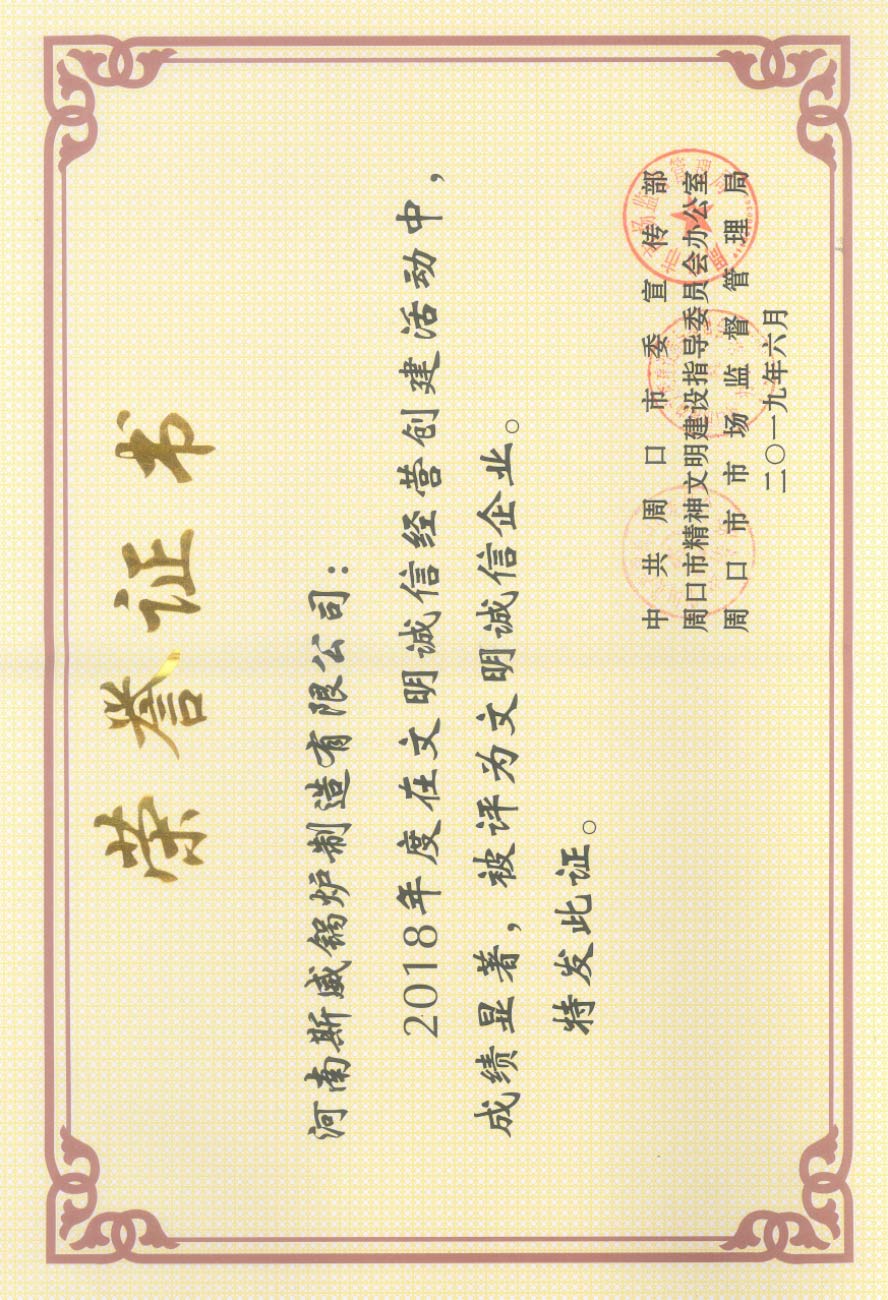 荣誉证书
河南斯威锅炉制造有限公司：
2018年度在文明诚信经营创建活动中，
成绩显著，被评为文明诚信企业。
特发此证。
中共周口市委宣传部
周口市精神文明建设指导委员会办公室
周口市市场监督管理局
二〇一九年六月